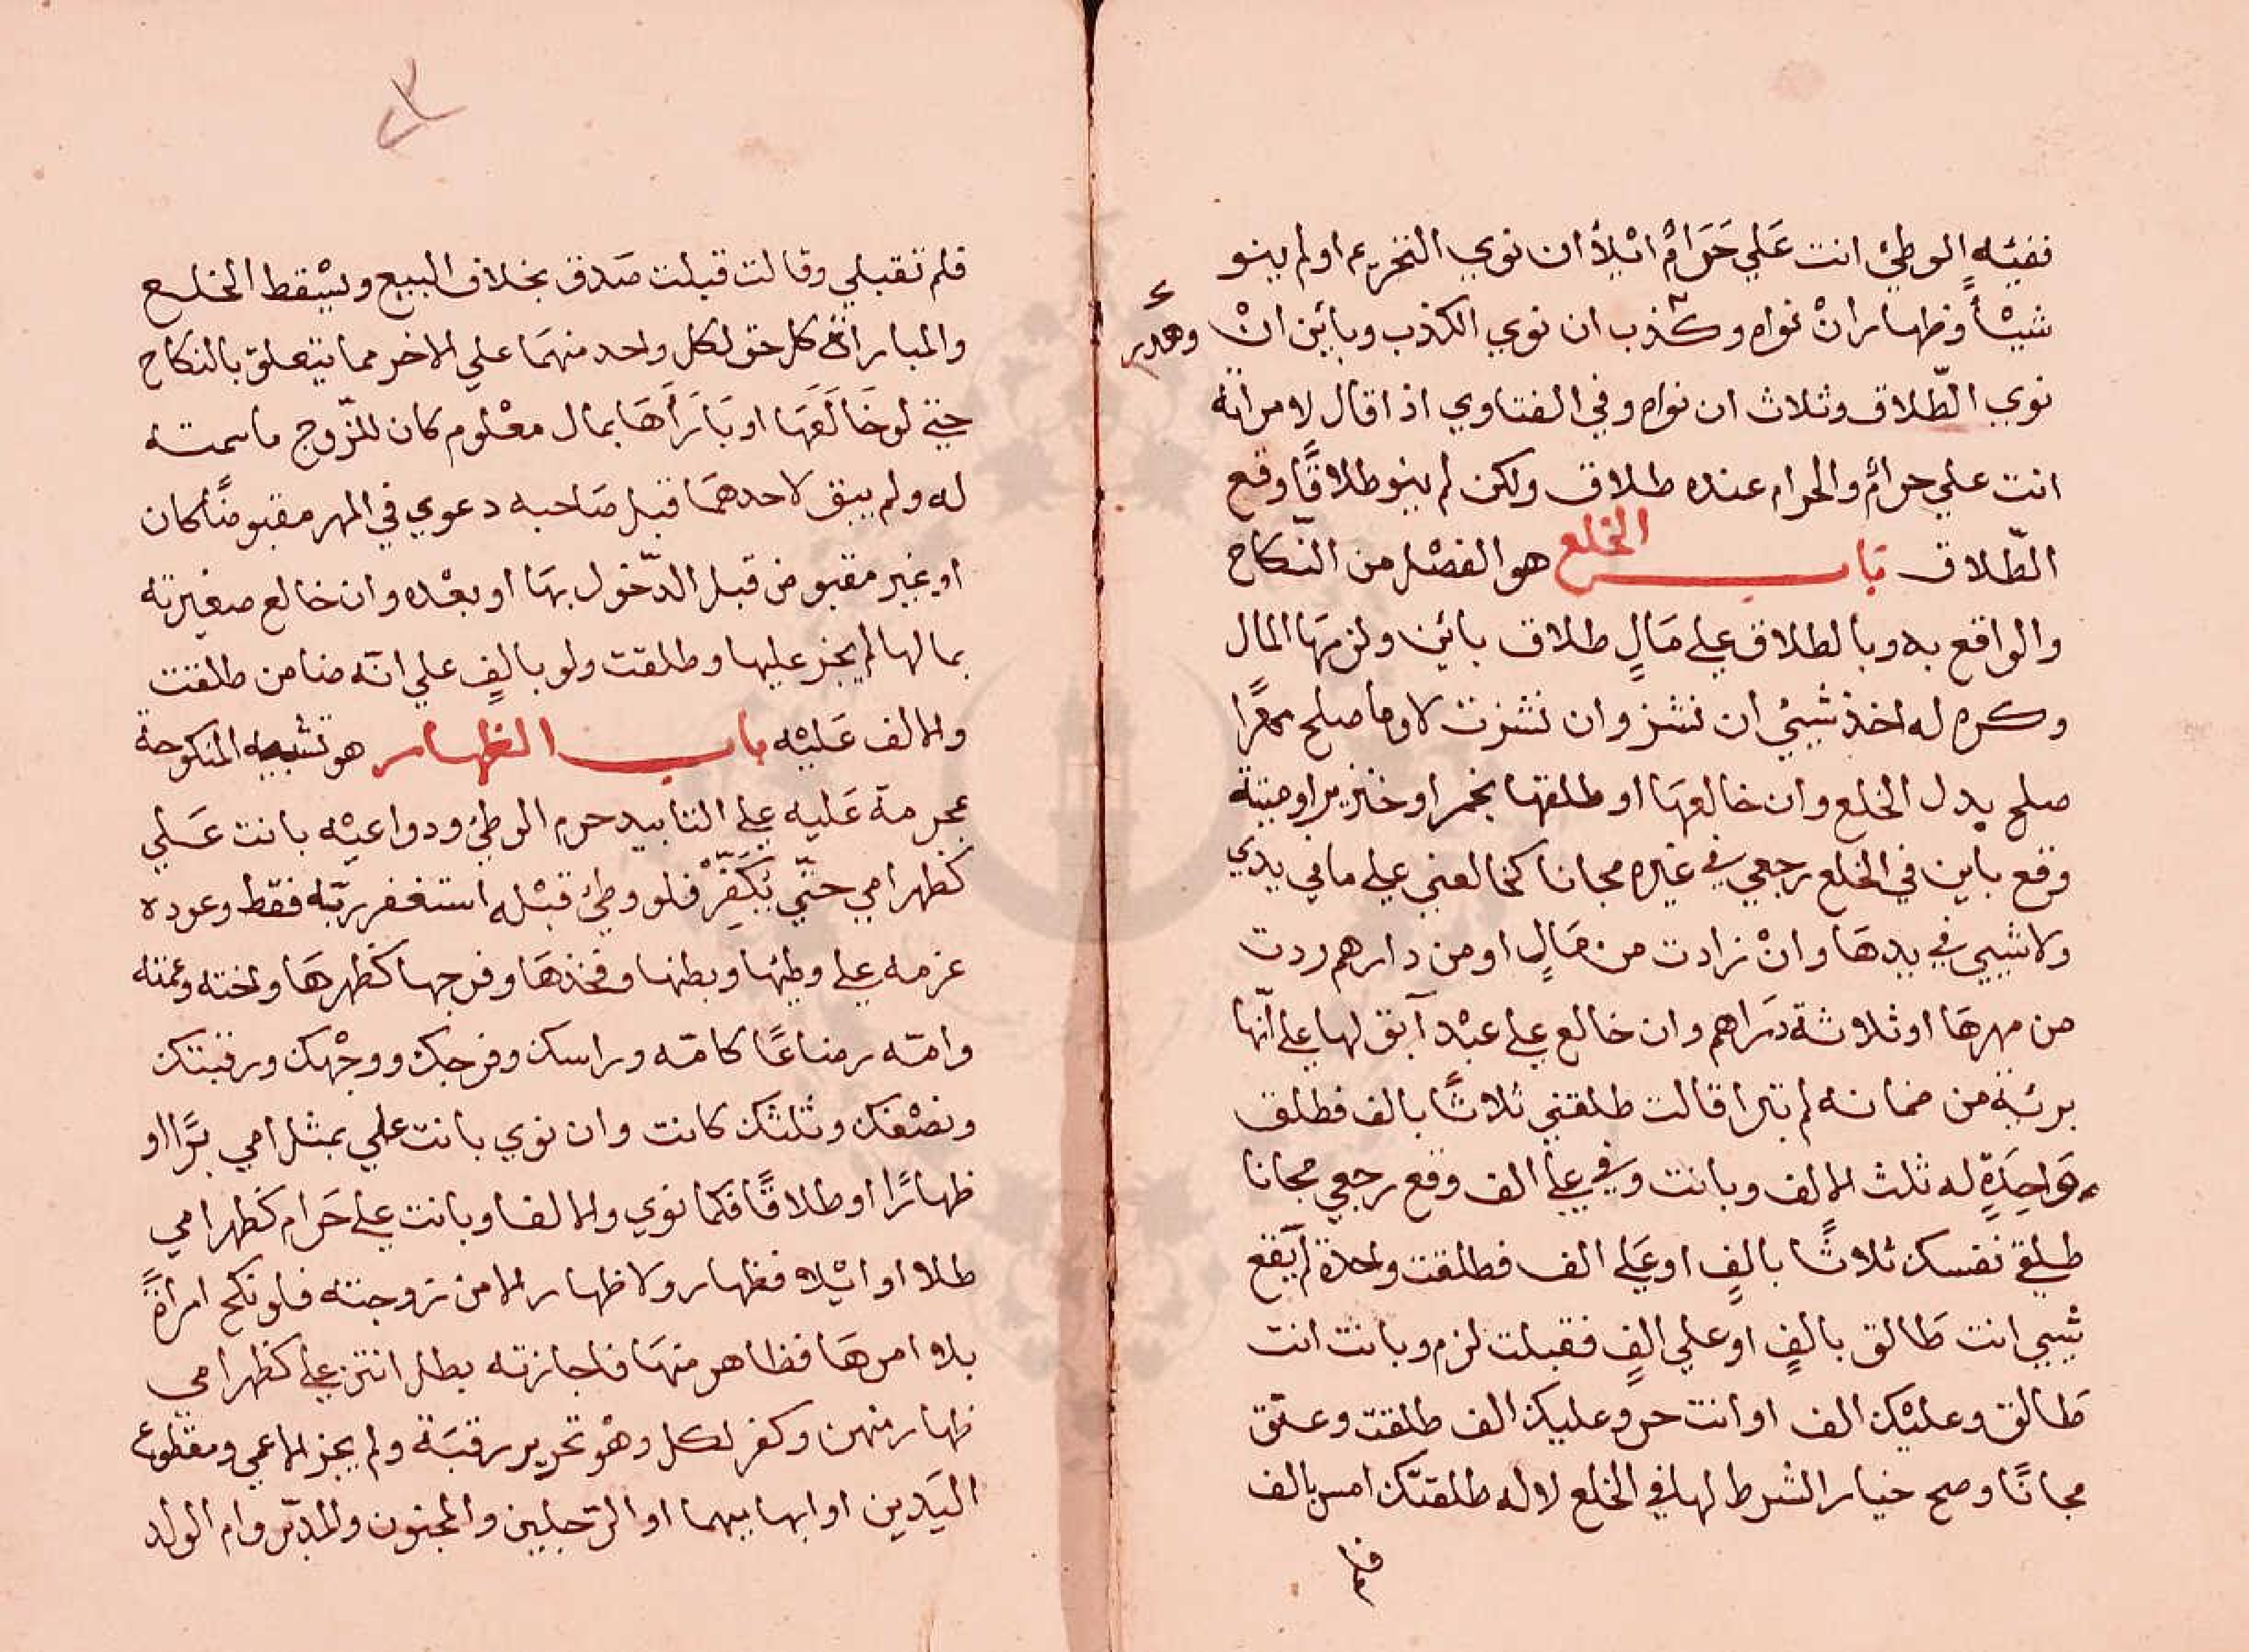 ففيئه الوطئ انت عَلي حَرَامٌ ائيلاٌ ان نوي التحريم اولم ينو
شيْأً وظهار انْ نواه وكذب ان نوي الكذب وبائن انْ
وهدر
نوي الطّلاق وثلاث ان نواه وفي الفتاوي اذا قال لامراته
انت علي حرامٌ والحرام عنده طلاق ولكن لم ينو طلاقًا وقع
الطّلاق بَاب الخلع هو الفصْل من النكاح
والواقع به وبالطلاق علي مَالٍ طلاق بائن ولزمهَا المال
وكره له اخذ شيئ ان نشز وان نشزت لا وما صلح مهرًا
صلح بدل الخلع وان خالعهَا او طلقها بخمر او خنزير او ميتة
وقع باين في الخلع رجعي في غيره مجانا كخالعني علي ما في يدي
ولا شيي في يدهَا وانْ زادت من مَالٍ او من دارهم ردت
من مهرهَا او ثلاثة دَراهم وان خالع علي عبْد آبق لها علي انّها
بريئة من ضمانه لم تبرا قالت طلقني ثلاثًا بالف فطلق
وَاحِدَةٍ له ثلث الالف وبانت وفي علي الف وقع رجعي مجانا
طلقي نفسك ثلاثًا بالفٍ او عَلي الف فطلقت واحدة لم يَقع
شْيي انت طَالق بالفٍ او علي الفٍ فقبلت لزم وبانت انت
طَالق وعليْك الف او انت حر وعليك الف طلقت وعتق
مجانًا وصح خيار الشرط لها في الخلع لا له طلقتك امس بالف
فلم
فلم تقبلي وقالت قبلت صَدق بخلاف البيع ويسْقط الخلع
والمباراة كل حق لكل واحد منهمَا علي الاخر مما يتعلق بالنكاح
حتي لو خَالَعَهَا او بَارَأَهَا بمال معْلوم كان للزّوج ما سمته
له ولم يبق لاحدهمَا قبل صَاحبه دعوي في المهر مقبوضًا كان
او غير مقبوض قبل الدّخول بهَا او بعْده وان خالع صغيرته
بمالها لم يجز عليها وطلقت ولو بالفٍ علي انه ضامن طلقت
والالف عَليْه باب الظهار هو تشبيه المنكوحة
بمحرمة عَليه علي التابيد حرم الوطئ ودواعيْه بانت عَلي
كظهر امي حتّي يُكَفِّرْ فلو وطئ قبْله استغفر ربّه فقط وعوده
عزمه علي وطئها وبطنها وفخذهَا وفرجها كظهرهَا واخته وعمته
وامّه رضاعًا كامّه وراسك وفرجك ووجْهك ورقبتك
ونصْفك وثلثك كانت وان نوي بانت علي بمثل امي برًّا او
ظهارًا او طلاقًا فكما نوي والا لغا وبانت علي حَرام كظهر امي
طلاا او ائيلا فظهار ولا ظهار الا من زوجته فلو نكح امراةً
بلا امرهَا فظاهر منهَا فاجازته بطل انتن علي كظهر امي
ظهار منهن وكفر لكل وهْو تحرير رقبَة ولم يجز الاعمي ومقطوع
اليَدين او ابهاميهما او الرّجلين والمجنون والمدبّر وام الولد